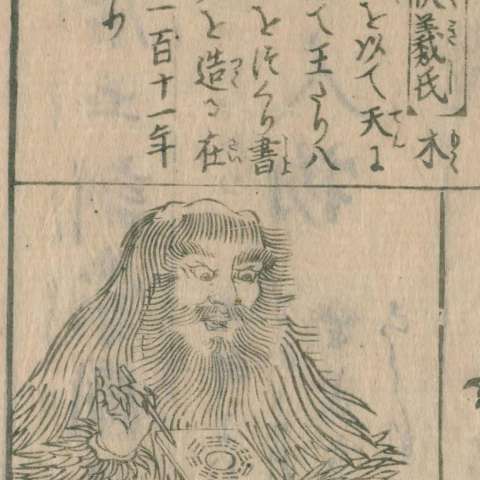 伏羲氏 木
を以て天に
て王たり八
をつくり書
を造る在
一百十一年
り